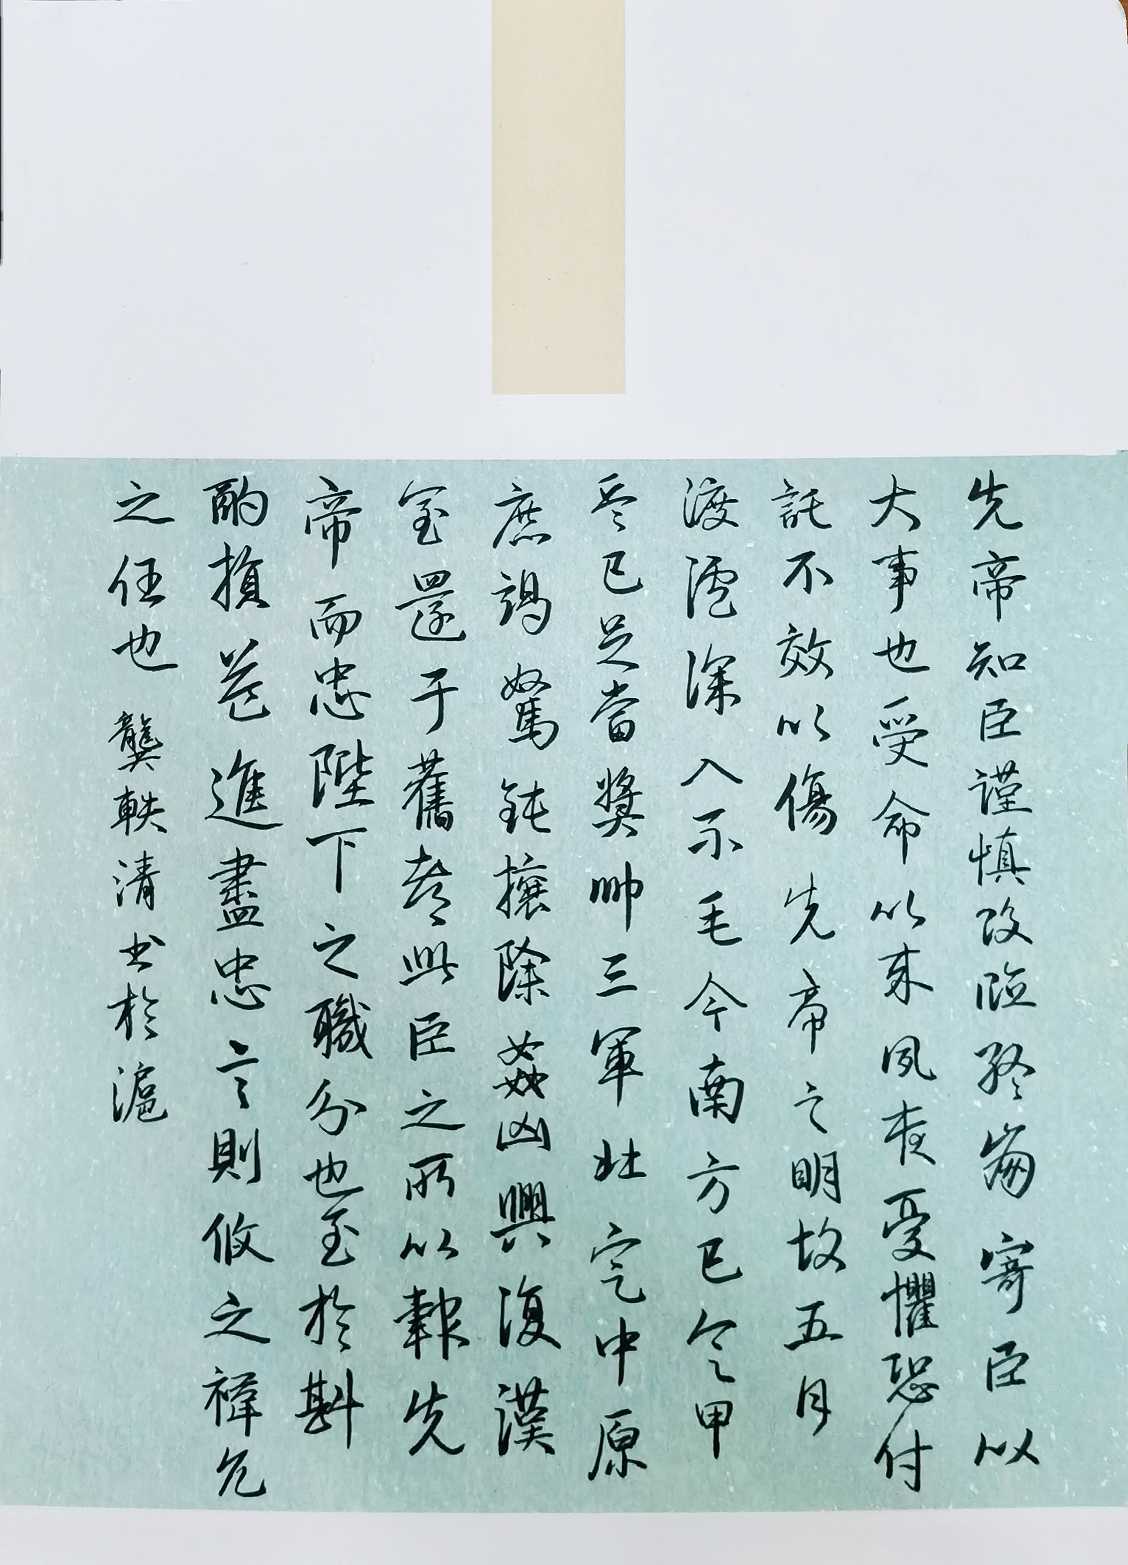 先帝知臣謹慎故臨終崩寄臣以
大事也受命以来夙夜憂懼恐付
託不效以傷先帝之明故五月
渡瀘深入不毛今南方已定甲
兵已足當獎帥三軍北定中原
庶竭駑鈍攘除姦凶興復漢
室還于舊都此臣之所以報先
帝而忠陛下之職分也至於斟
酌損益進盡忠言則攸之褘允
之任也 龔軼清书於滬